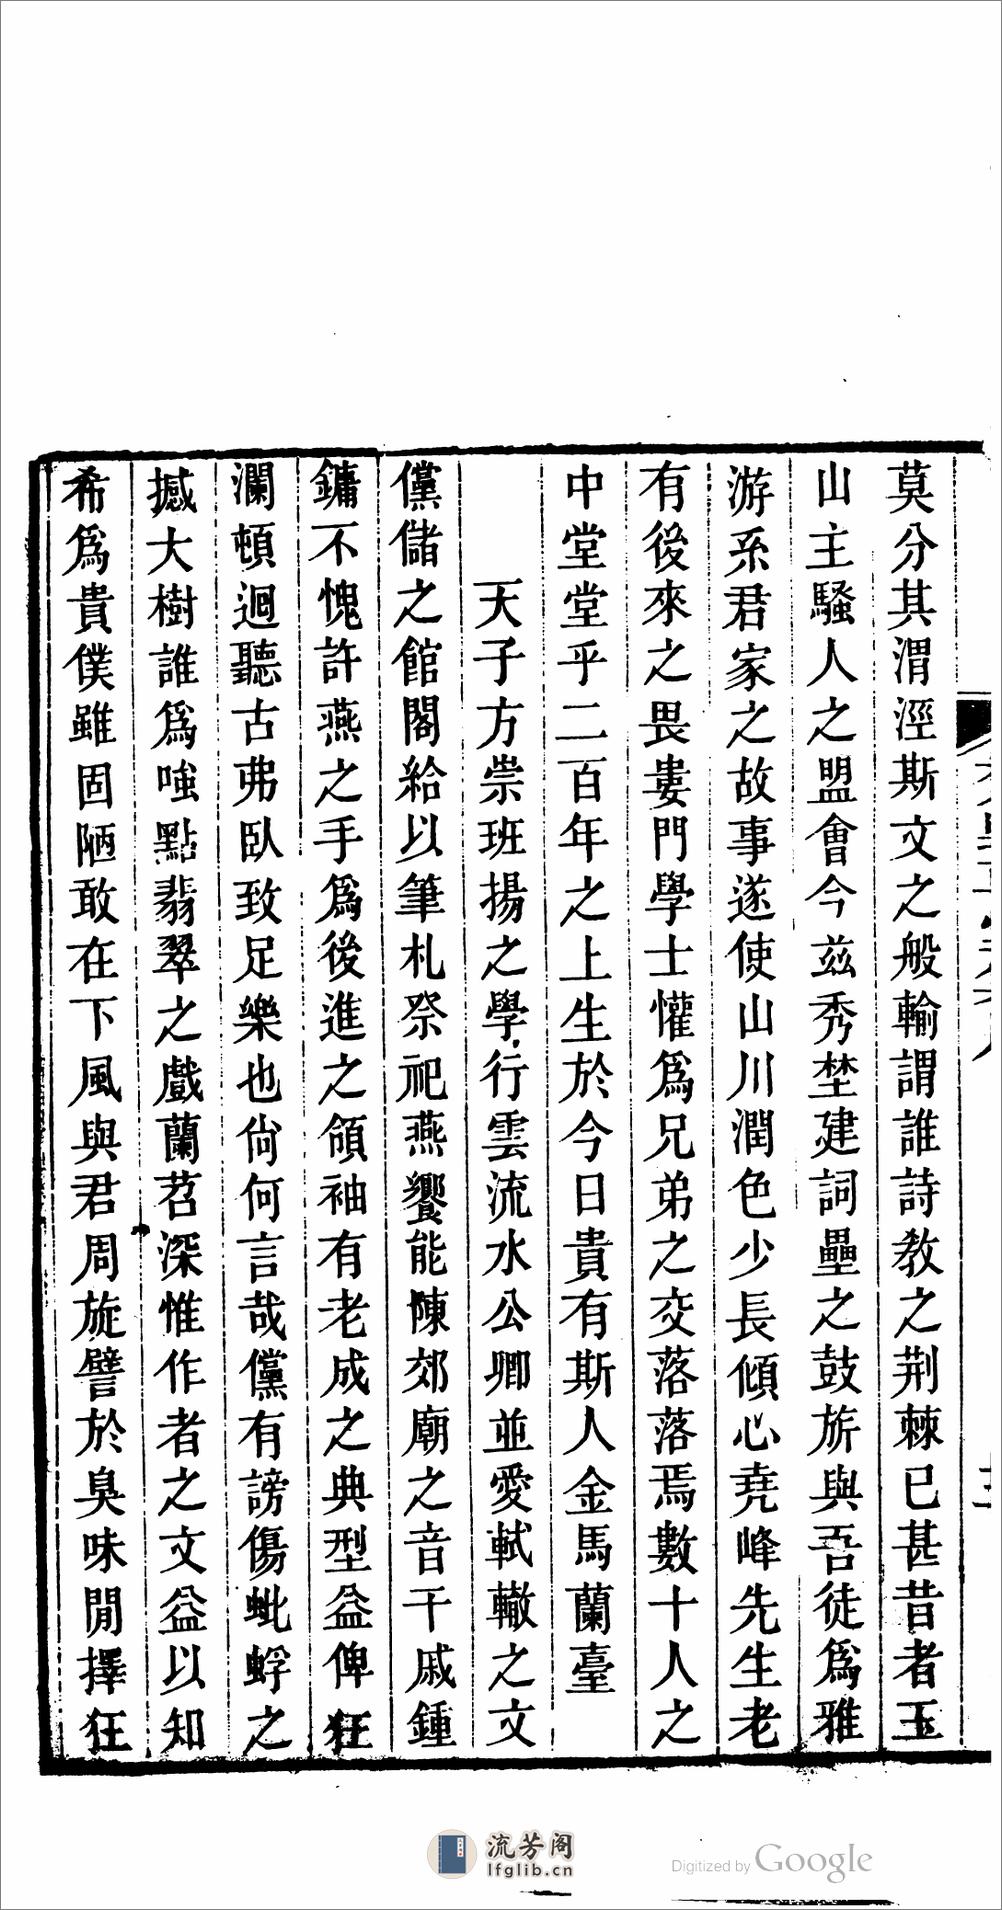 莫分其渭涇斯文之般輸謂誰詩教之荆棘已甚昔者玉
山主騷人之盟會今茲秀埜建詞壘之鼓旂與吾徒爲雅
游系君家之故事遂使山川潤色少長傾心堯峰先生老
有後來之畏婁門學士懽爲兄弟之交落落焉數十人之
中堂堂乎二百年之上生於今日貴有斯人金馬蘭臺
天子方崇班揚之學行雲流水公卿並愛軾轍之文
儻儲之館閣給以筆札祭祀燕饗能陳郊廟之音干戚鍾
鏞不愧許燕之手爲後進之領袖有老成之典型益俾狂
瀾頓迴聽古弗臥致足樂也尙何言哉儻有謗傷蚍蜉之
撼大樹誰爲嗤點翡翠之戲蘭苕深惟作者之文益以知
希爲貴僕雖固陋敢在下風與君周旋譬於臭味閒擇狂
流芳阁
lfglib.cn
Digitized by Google